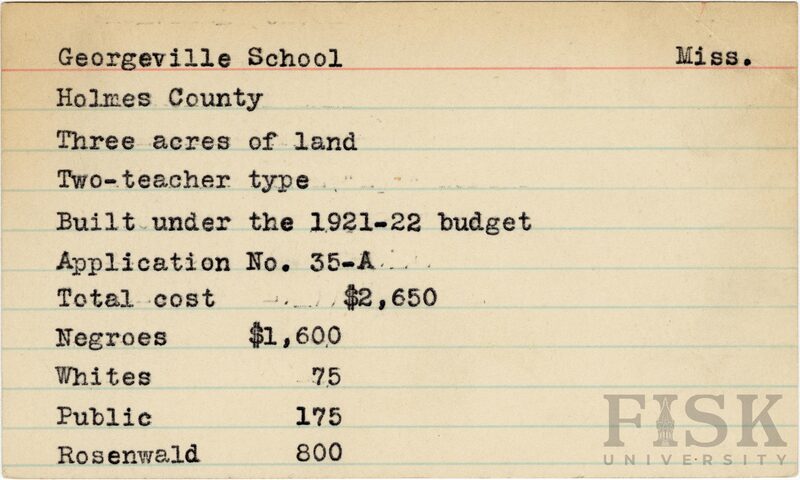 Georgeville School Miss.
Holmes County
Three acres of land
Two-teacher type
Built under the 1921-22 budget
Application No. 35-A
Total cost $2,650
Negroes $1,600
Whites 75
Public 175
Rosenwald 800
FISK
UNIVERSITY